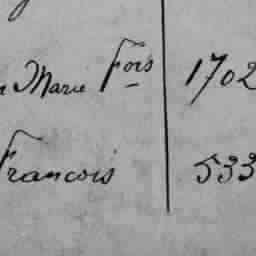 Marie Fois 1702
Francois 533